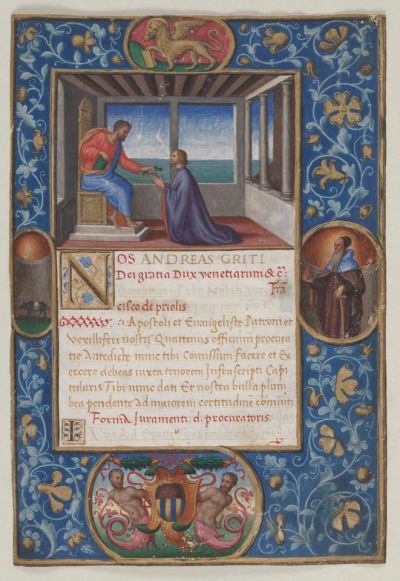 NOS ANDREAS GRITI
Dei gratia Dux venetiarum & c̄.
Frā
cisco de priolis
Apostoli et Evangelistę Patroni et
Vexilliferi nostri Quatenus officium procura
tię Antedictę nunc tibi Comissum facere et ex
ercere debeas iuxta tenorem Infrascripti Capi
tularis Tibi nunc dati Et nostra bulla plum
bea pendente Ad maiorem certitudinē comuniti
Forma Iuramenti. d. procuratoris.
I